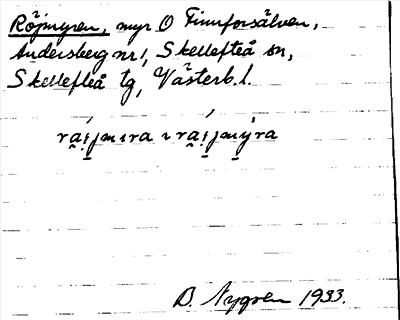 Röjmyren, myr O Finnforsälven,
Andersberg nr 1, Skellefteå sn,
Skellefteå tg, Västerb. l.
B. Nygren 1933.